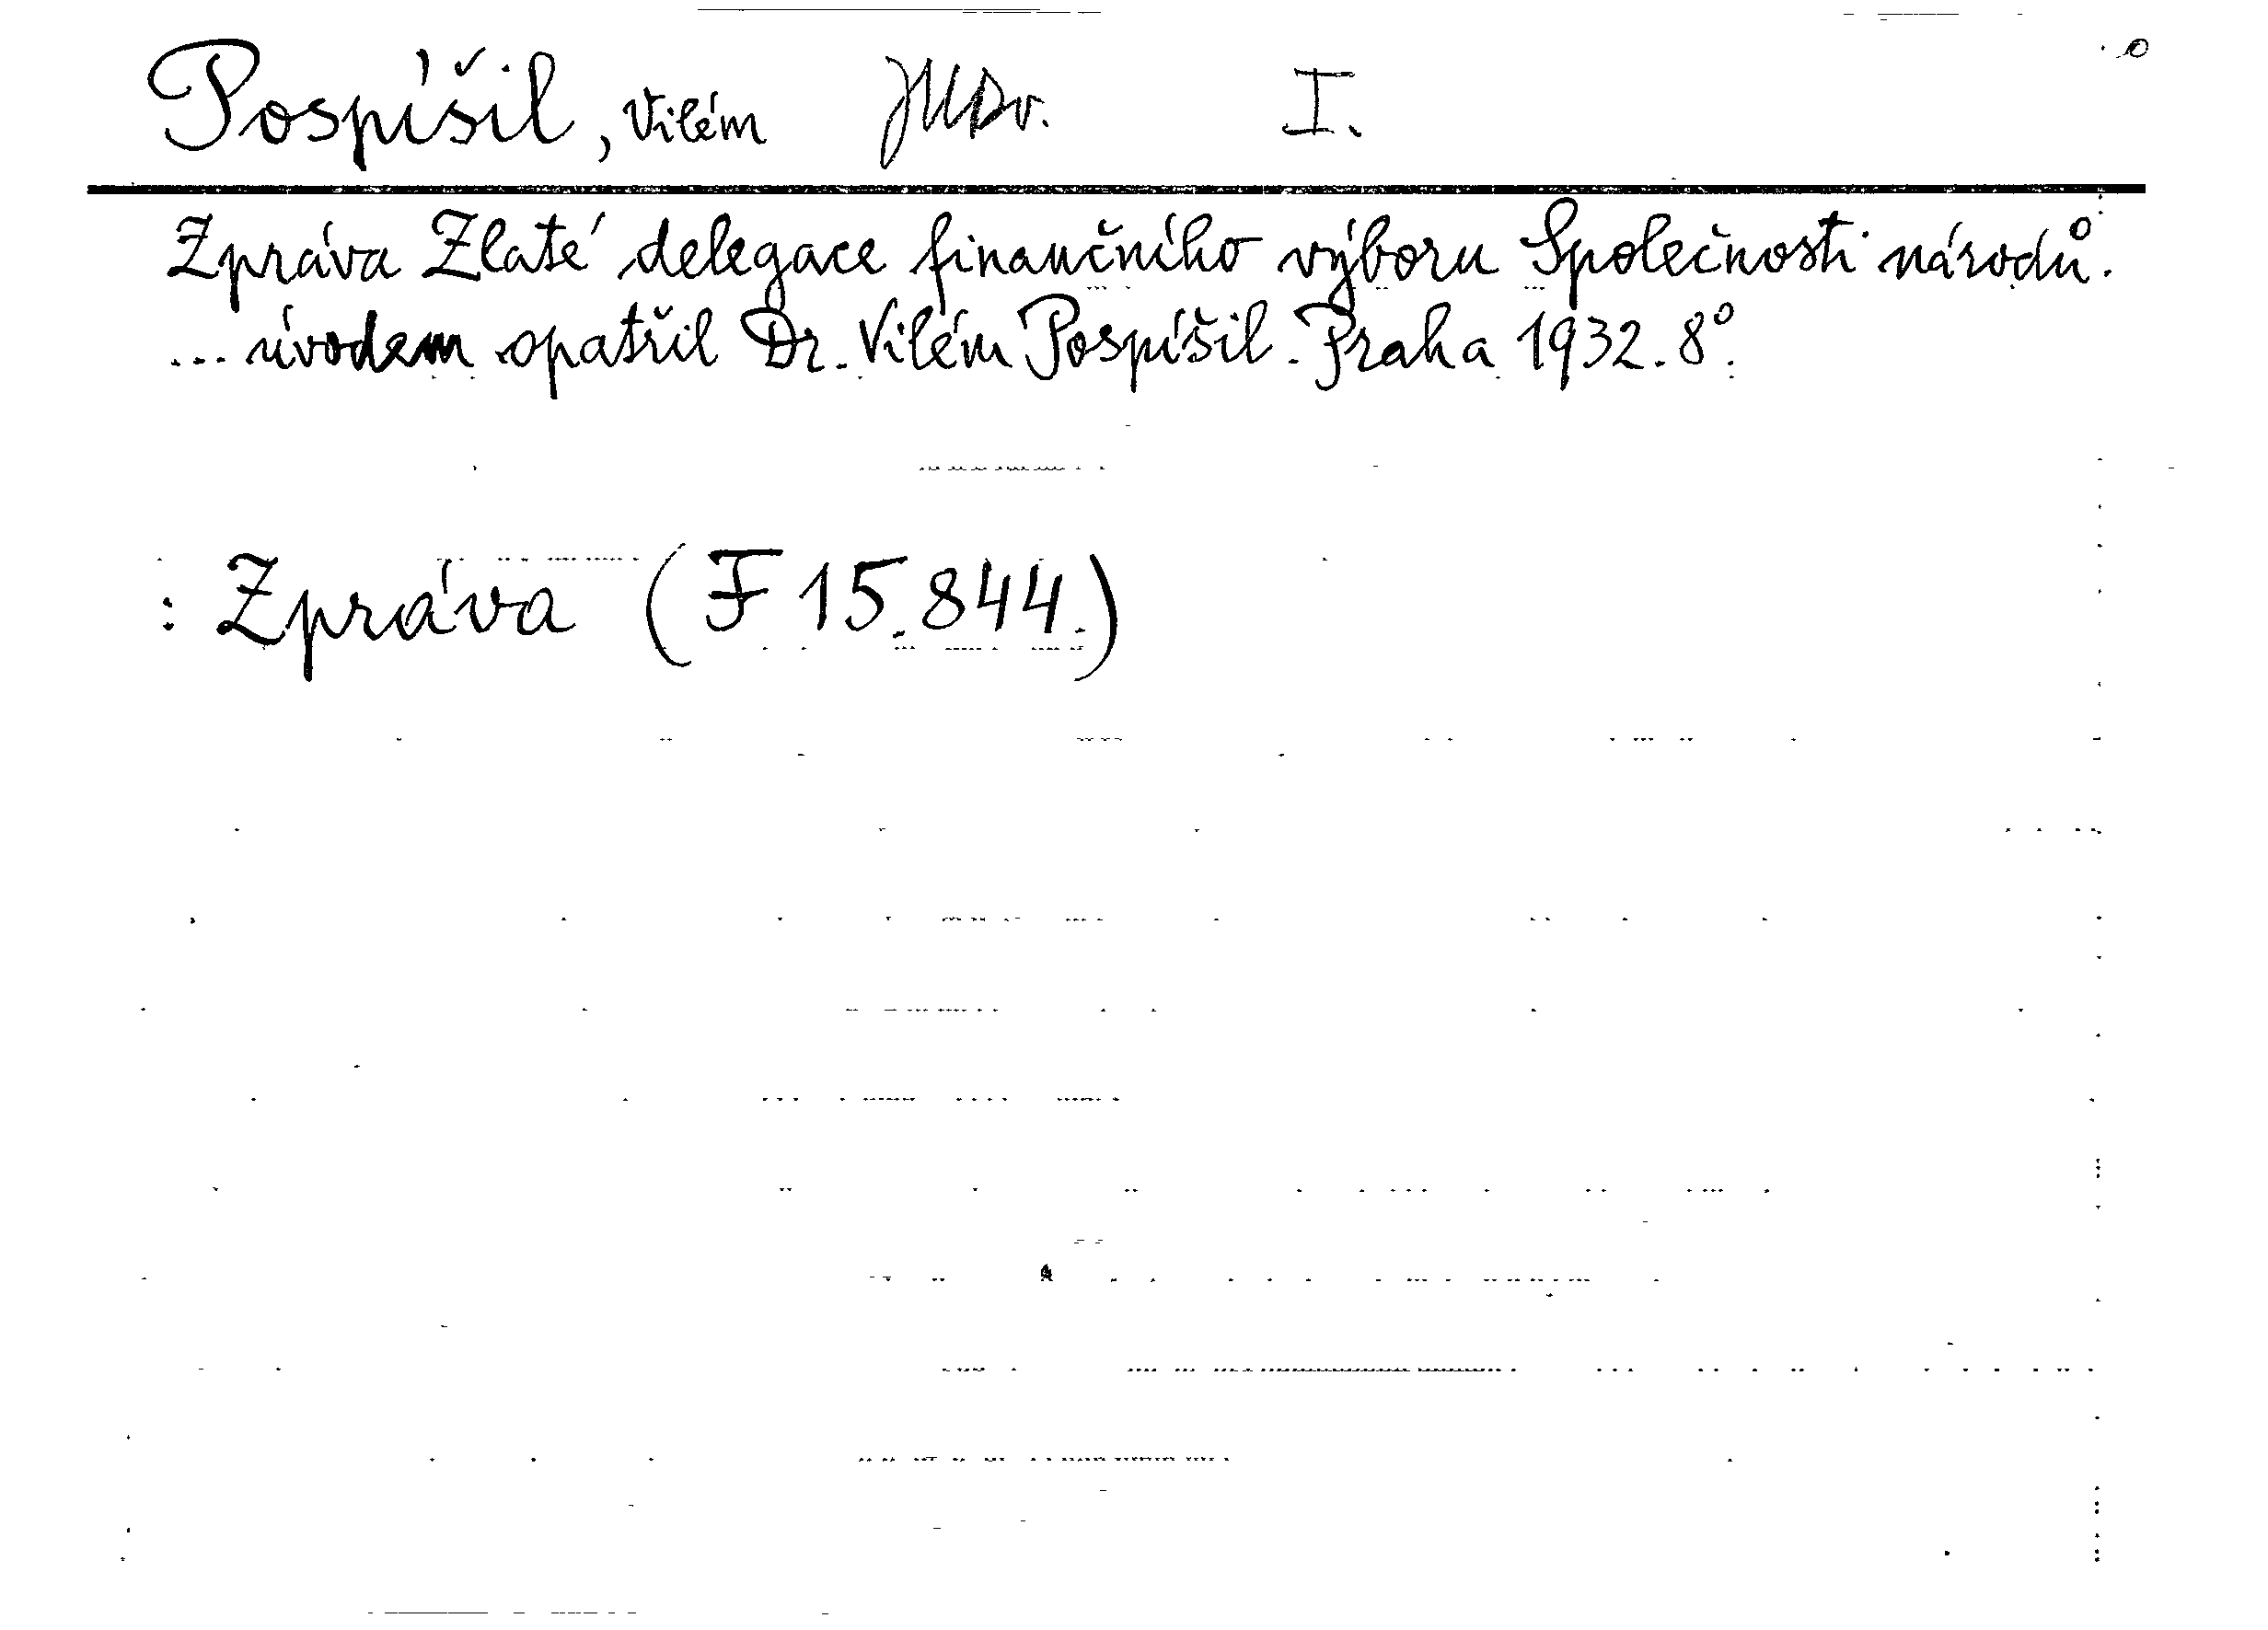 Pospíšil, Vilém JUDr. I.
Zpráva Zlaté delegace finančního výboru Společnosti národů.
... úvodem opatřil Dr. Vilém Pospíšil. Praha 1932. 8°.
: Zpráva (F 15.844.)